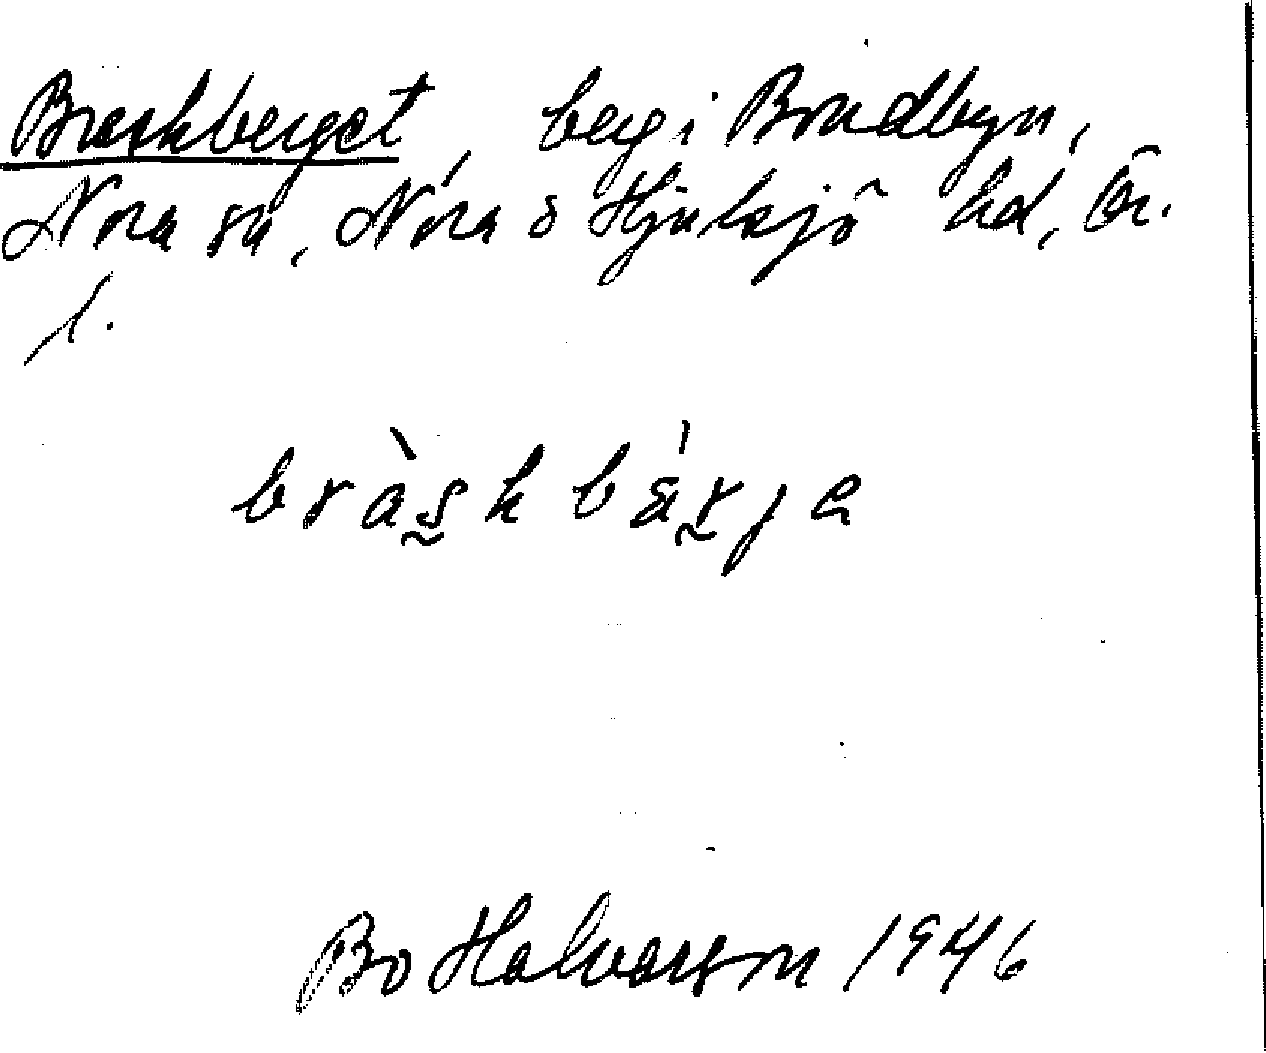 Braskberget, berg i Bradbyn,
Nora sn, Nora o Hjulsjö hd, Ör.
l.
bràskbárje
Bo Halvarson 1946